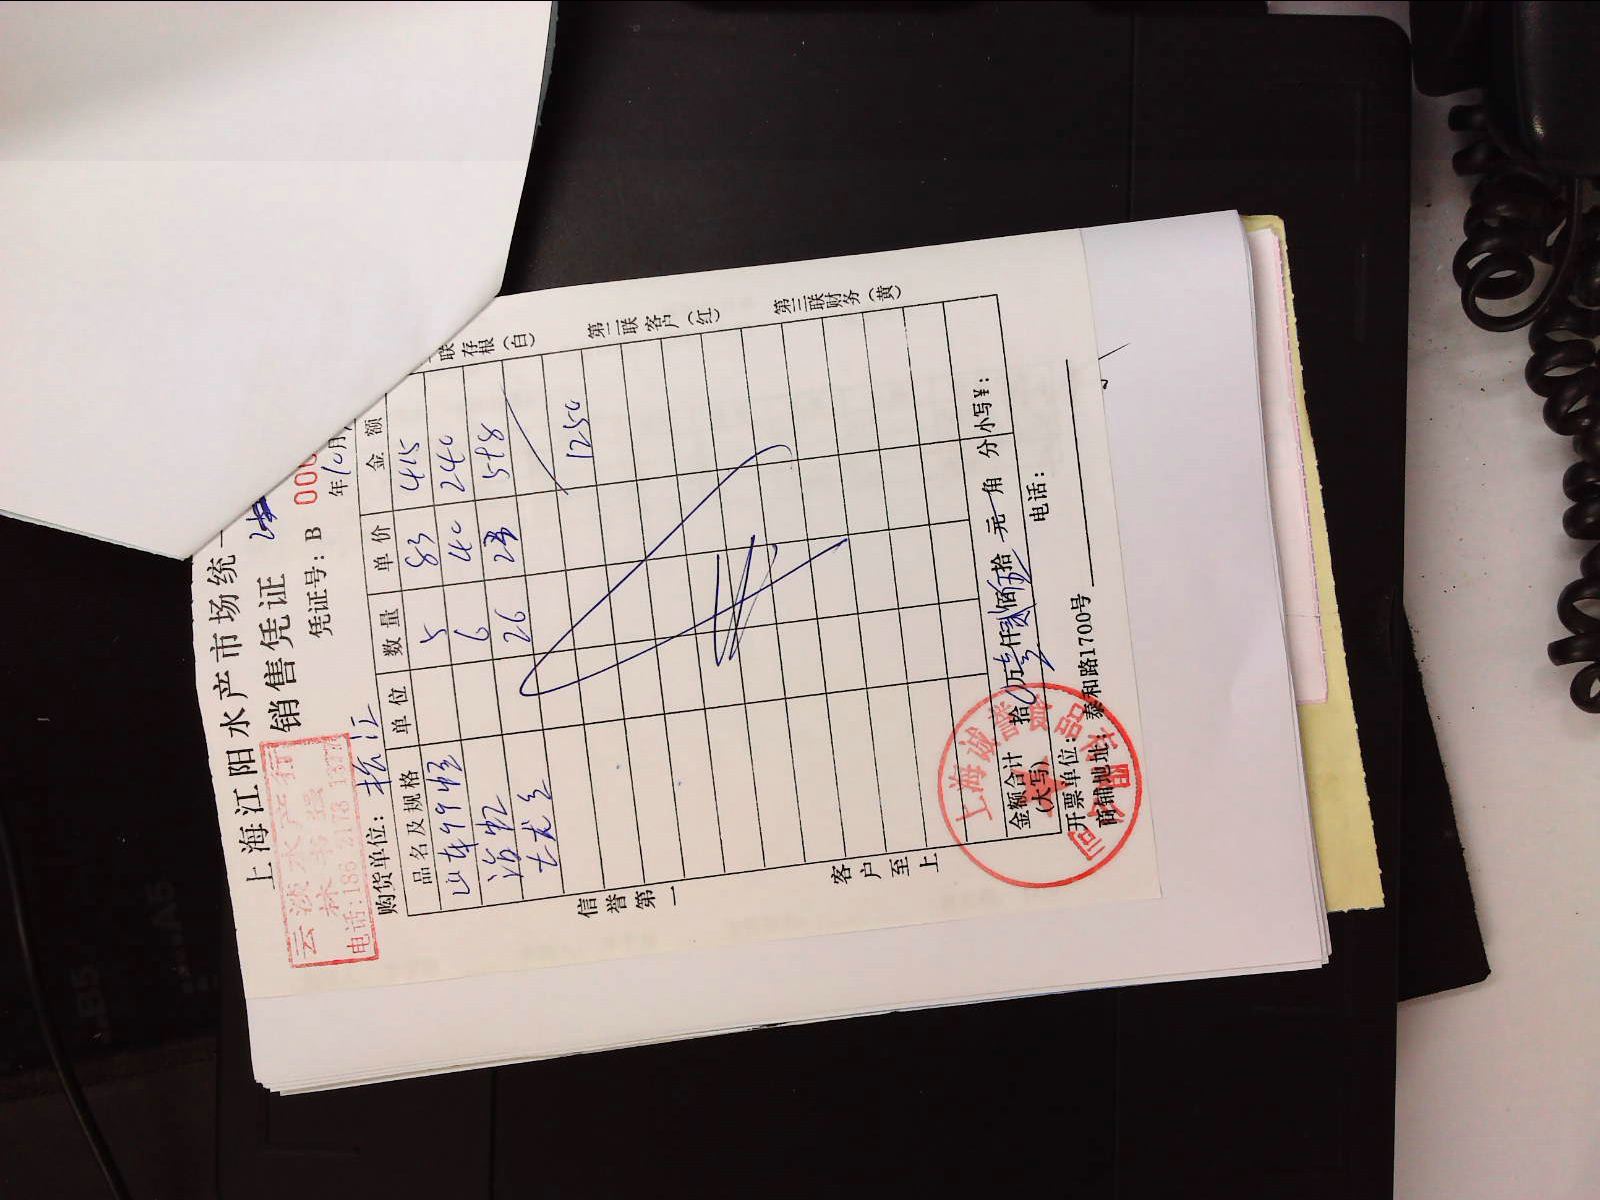 上海江阳水产市场统一
销售凭证
云淡水产行
林书强
电话:186 2178 137
凭证号: B 000
购货单位: 松江
年10月
品名及规格 单位 数量 单价 金额
5 83 415
6 40 240
大龙 26 23 598
1250
联存根(白)
第二联客户(红)
第三联财务(黄)
信誉第一
客户至上
金额合计(大写) 拾 万 壹 仟 贰 佰 伍 拾 元 角 分 小写¥:
开票单位: 电话:
商铺地址: 泰和路1700号
上海诚誉食品有限公司